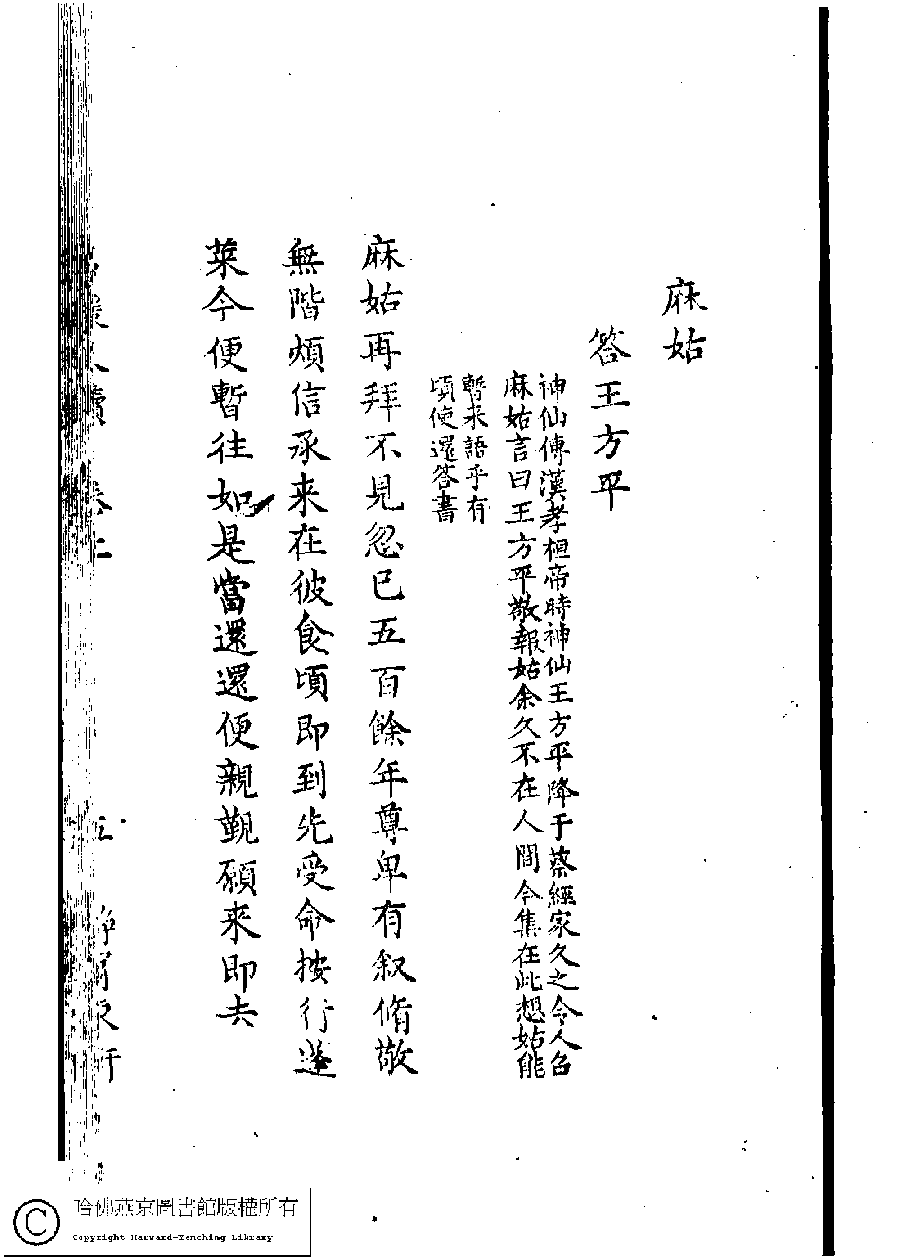 麻姑
答王方平
神仙傳漢孝桓帝時神仙王方平降于蔡經家久之令人召
麻姑言曰王方平敬報姑余久不在人間今集在此想姑能
暫来語乎有
頃使還答書
麻姑再拜不見忽已五百餘年尊卑有叙脩敬
無階煩信承来在彼食頃即到先受命按行蓬
萊今便暫往如是當還還便親覲願来即去
哈佛燕京圖書館版權所有
Copyright Harvard-Yenching Library